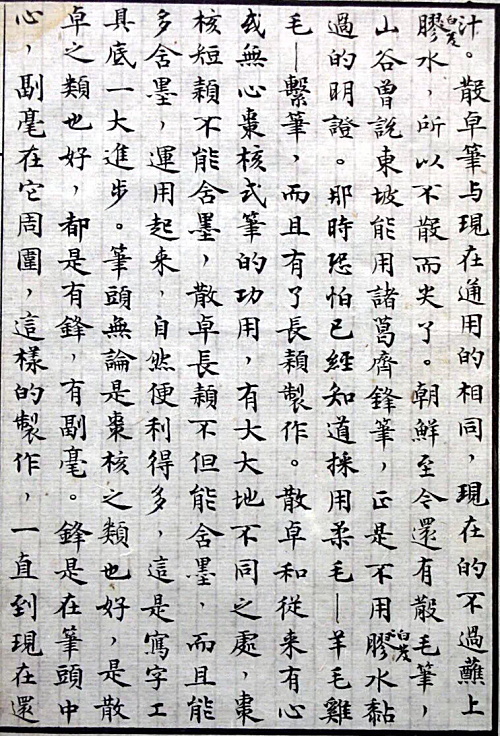 汁。散卓筆与現在通用的相同，現在的不過蘸上
膠白芨水，所以不散而尖了。朝鮮至今還有散毛筆，
山谷曾說東坡能用諸葛齊鋒筆，正是不用膠白芨水黏
過的明證。那時恐怕已經知道採用柔毛—羊毛雞
毛—繫筆，而且有了長穎製作。散卓和從来有心
或無心棗核式筆的功用，有大大地不同之處，棗
核短穎不能含墨，散卓長穎不但能含墨，而且能
多含墨，運用起来，自然便利得多，這是寫字工
具底一大進步。筆頭無論是棗核之類也好，是散
卓之類也好，都是有鋒，有副毫。鋒是在筆頭中
心，副毫在它周圍，這樣的製作，一直到現在還